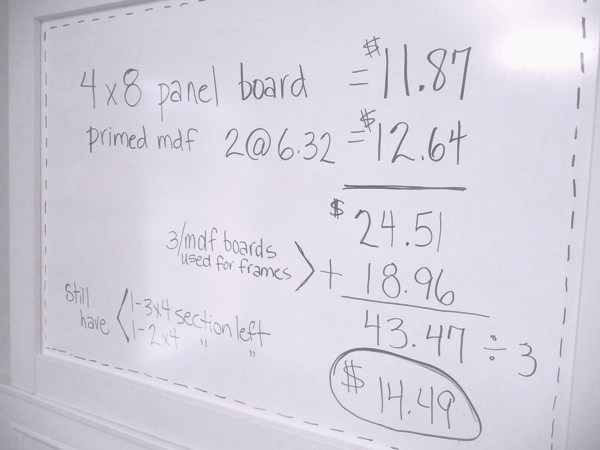 4x8 panel board = $11.87
primed mdf 2@6.32 = $12.64
$24.51
3/mdf boards used for frames > + 18.96
43.47 ÷ 3
$14.49
still have < 1-3x4 section left
1-2x4 " "